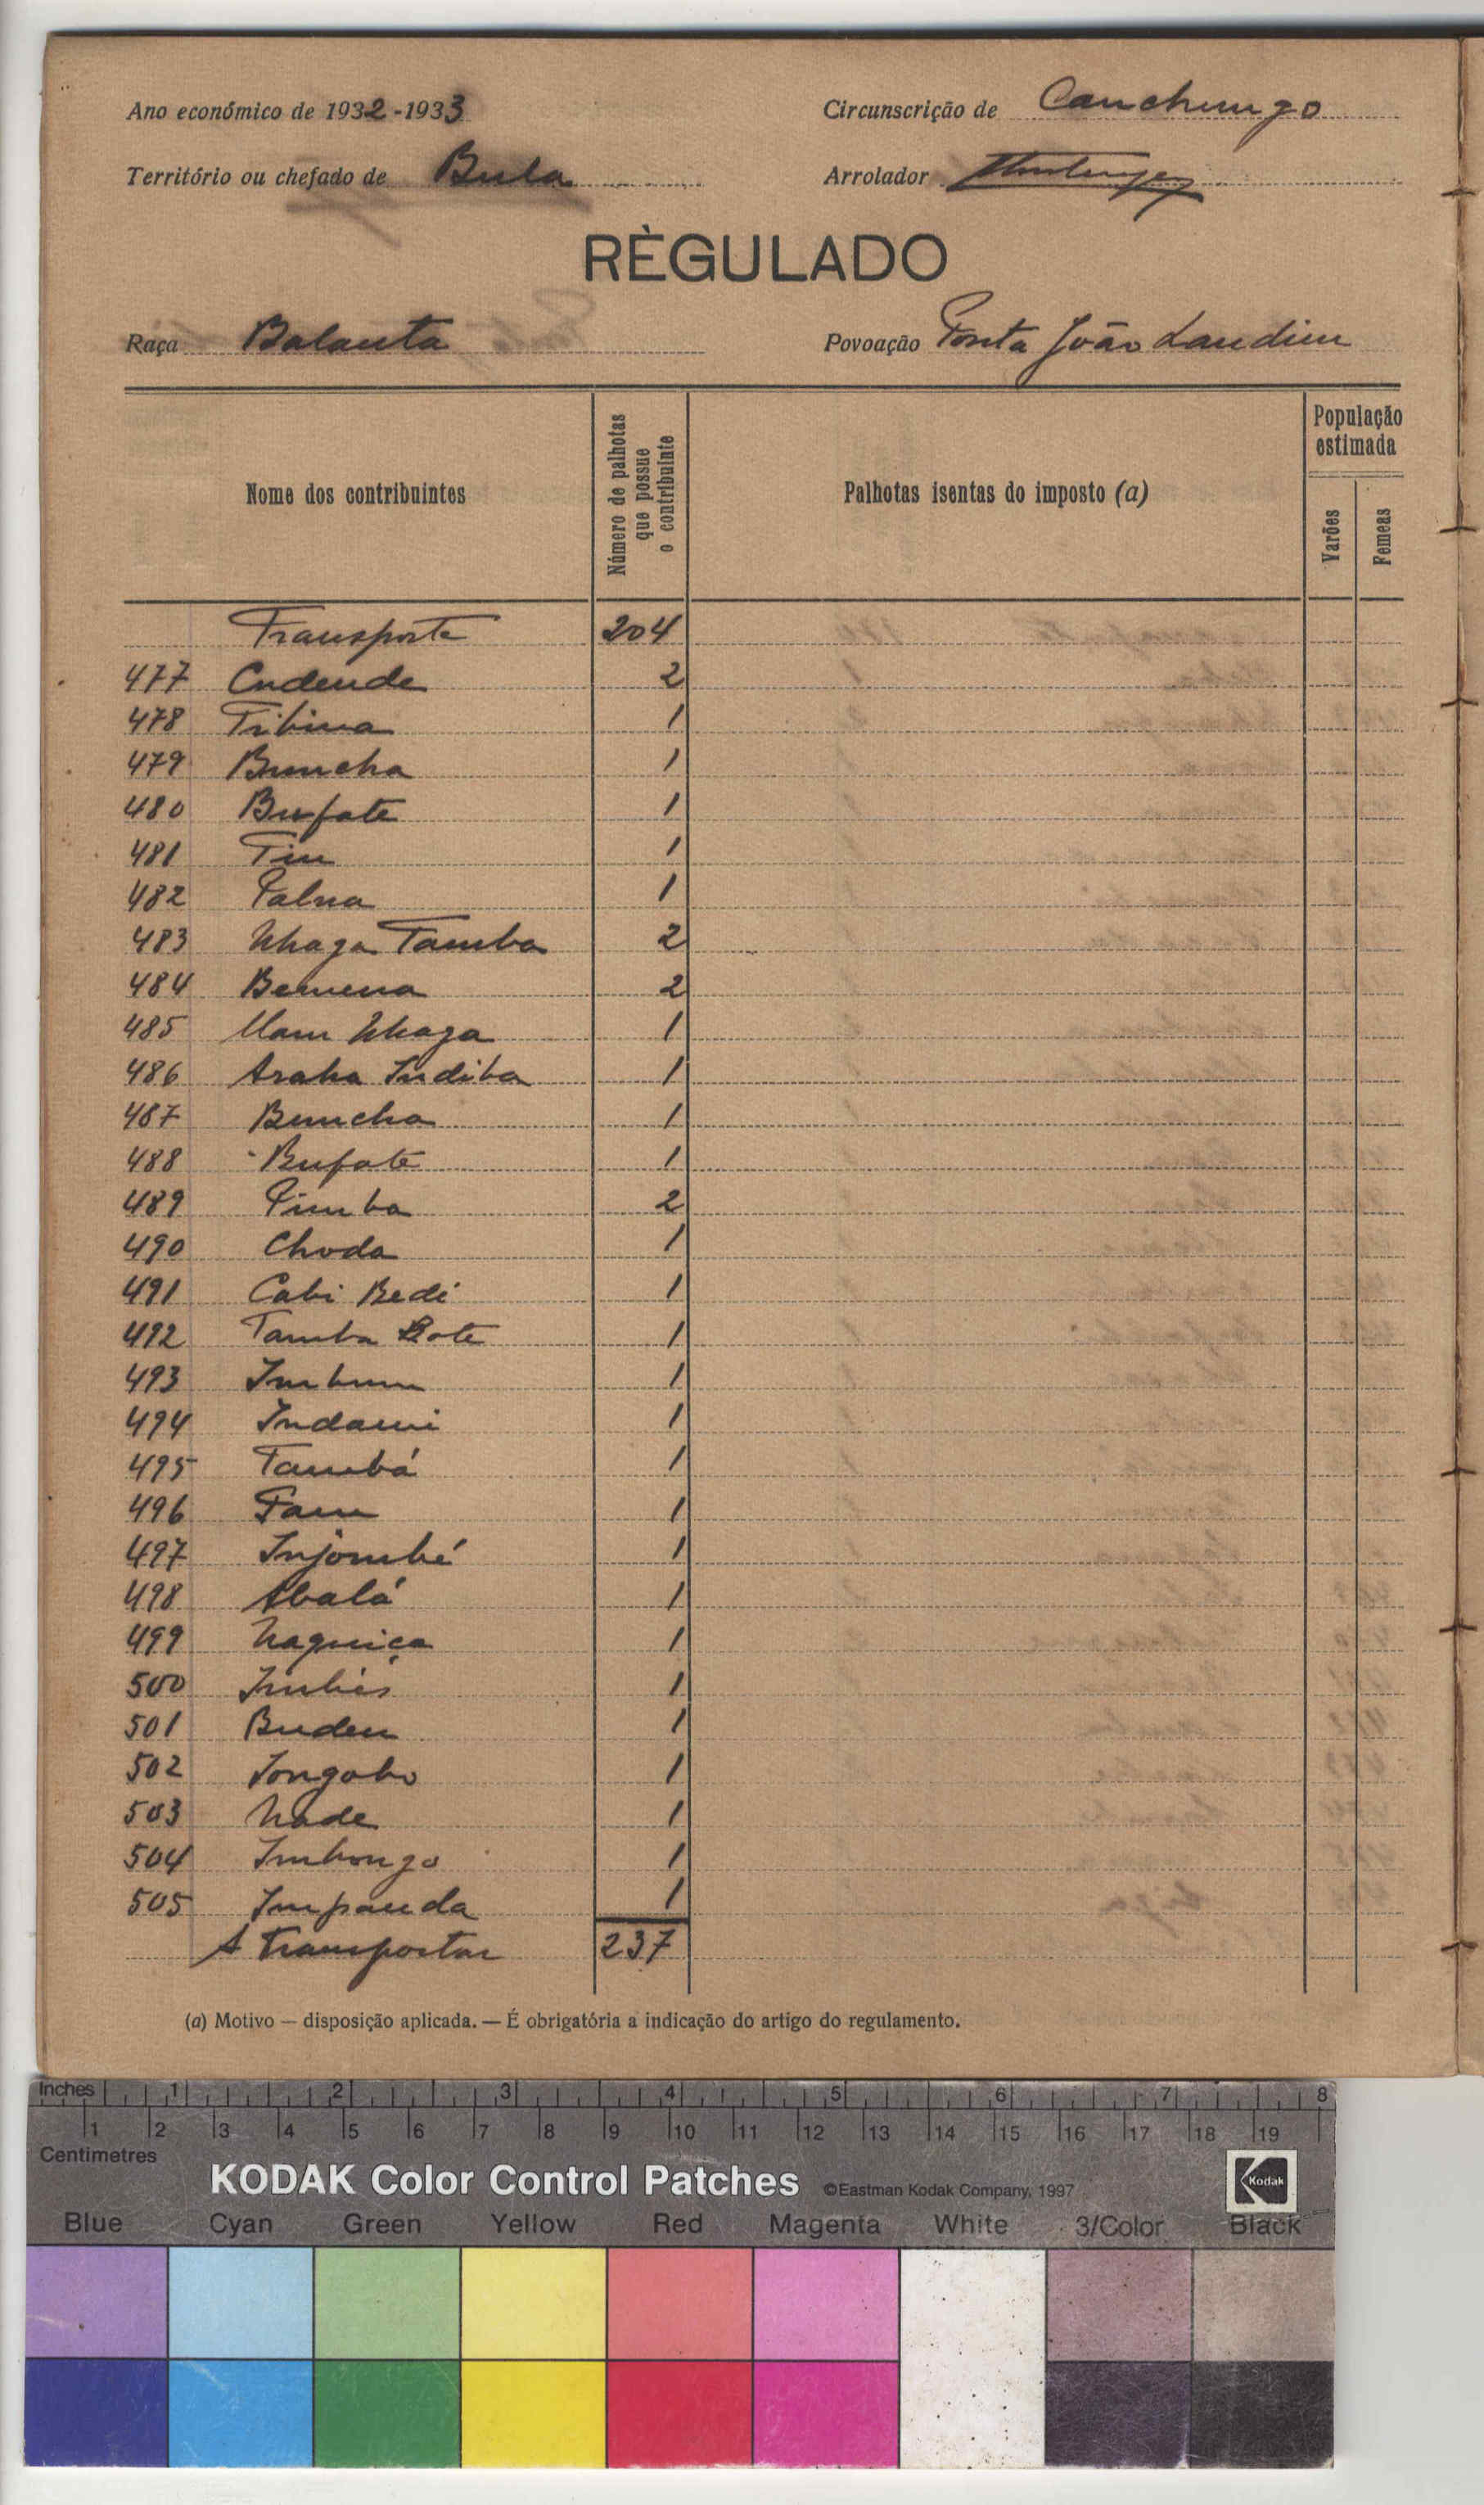 Ano económico de 1932-1933
Circunscrição de Canchungo
Território ou chefado de Bula
Arrolador
RÈGULADO
Raça Balanta
Povoação Ponta João Landim
Nome dos contribuintes
Número de palhotas que possue o contribuinte
Palhotas isentas do imposto (a)
População estimada
Varões
Femeas
Transporte 204
477 Cudende 2
478 Tibina 1
479 Buncha 1
480 Bufate 1
481 Tin 1
482 Palna 1
483 Nhaga Tamba 2
484 Bemena 2
485 Mam Nhaga 1
486 Araha Indiba 1
487 Buncha 1
488 Bufate 1
489 Pimba 2
490 Choda 1
491 Cabi Bedi 1
492 Tamba Bote 1
493 1
494 Indami 1
495 Tambá 1
496 Fam 1
497 Injombé 1
498 Abalá 1
499 Naguiça 1
500 1
501 Buden 1
502 Songobo 1
503 Nade 1
504 Imbongo 1
505 Impanda 1
A transportar 237
(a) Motivo — disposição aplicada. — É obrigatória a indicação do artigo do regulamento.
Inches 1 2 3 4 5 6 7 8
1 2 3 4 5 6 7 8 9 10 11 12 13 14 15 16 17 18 19
Centimetres
KODAK Color Control Patches ©Eastman Kodak Company, 1997 Kodak
Blue Cyan Green Yellow Red Magenta White 3/Color Black